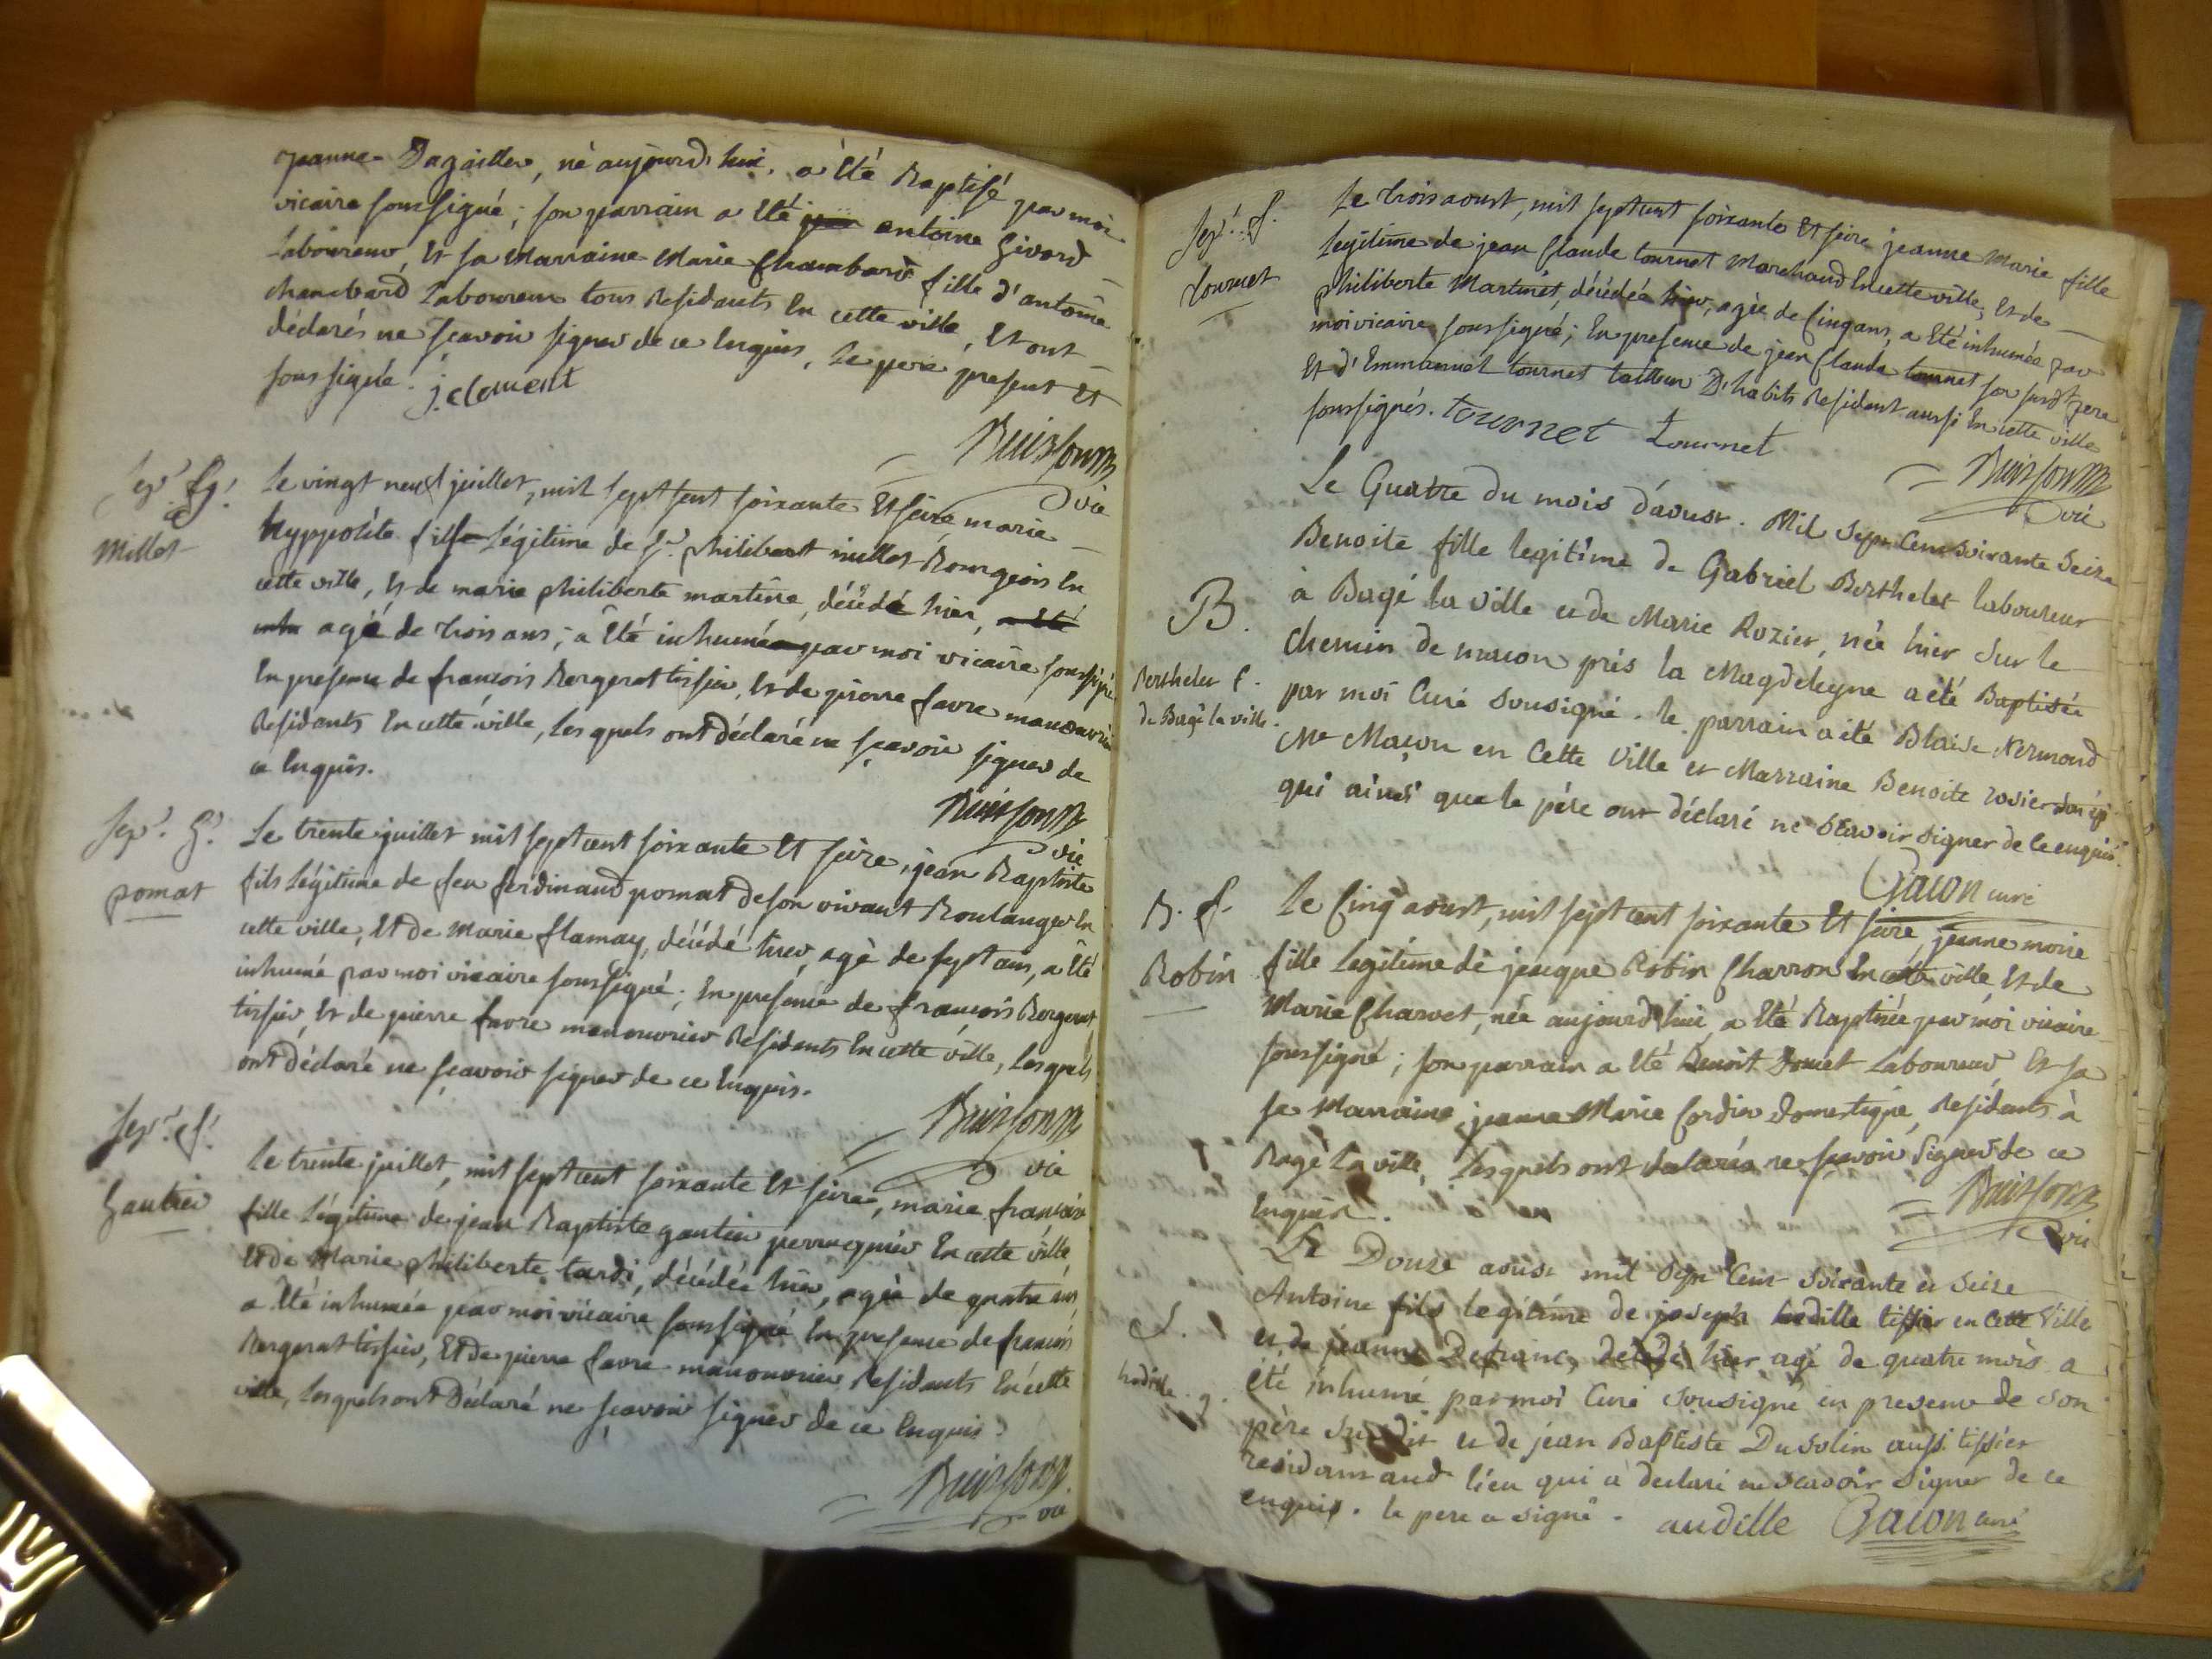 jeanne Dagallier, né aujourd'hui, a Eté Baptisé par moi
vicaire soussigné; son parrain a Eté antoine Givord
Laboureur, Et sa Marraine Marie Chambard fille d'antoine
chambard Laboureur tous Residants En cette ville, Et ont
déclarés ne sçavoir signer de ce Enquis, Le pere present Et
soussigné. j. clement
Buisson
vic
Sepr. G.
Millet
Le vingt neuf juillet, mil sept cent soixante Et seize marie
hyppolite fils Légitime de Sr. philibert millet Bourgeois En
cette ville, Et de marie philiberte martine, décédé hier, a Eté
inhu agé de trois ans; a Eté inhumé par moi vicaire soussigné
En presence de françois Bergerat tissier, Et de pierre favre manouvrier
Residants En cette ville, Lesquels ont déclaré ne sçavoir signer de
ce Enquis.
Buisson
vic
Sepr. G.
pomat
Le trente juillet mil sept cent soixante Et seize, jean Baptiste
fils Légitime de feu ferdinand pomat de son vivant Boulanger En
cette ville, Et de Marie flamay, décédé hier, agé de sept ans, a Eté
inhumé par moi vicaire soussigné; En presence de françois Bergerat
tissier, Et de pierre favre manouvrier Residants En cette ville, Lesquels
ont déclaré ne sçavoir signer de ce Enquis.
Buisson
vic
Sepr. f.
Gautier
Le trente juillet, mil sept cent soixante Et seize, marie françoise
fille Légitime de jean Baptiste gautier perruquier En cette ville
Et de Marie philiberte tardi, décédée hier, agée de quatre ans
a Eté inhumée par moi vicaire soussigné En presence de françois
Bergerat tissier, Et de pierre favre manouvrier Residants En cette
ville, Lesquels ont Déclaré ne sçavoir signer de ce Enquis.
Buisson
vic
Sepr. f.
tournet
Le trois aoust, mil sept cent soixante Et seize jeanne Marie fille
Legitime de jean Claude tournet Marchand En cette ville, Et de
philiberte Martinet, décédée hier, agée de cinq ans, a Eté inhumée par
moi vicaire soussigné; En presence de jean Claude tournet son susdt pere
Et d'Emmanuel tournet tailleur D'habits Residant aussi En cette ville
soussignés. Tournet tournet
Buisson
vic
B.
Berthelet f.
de Bagé la ville.
Le Quatre du mois d'aoust. Mil Sept Cent soixante Seize
Benoite fille legitime de Gabriel Berthelet laboureur
à Bagé la Ville et de Marie Rozier, née hier sur le
Chemin de macon près la Magdeleyne a été Baptisée
par moi Curé sousigné. le parrain a été Blaise
Me Maçon en Cette Ville et Marraine Benoite rosier
qui ainsi que le père ont déclaré ne Scavoir signer de ce enquis.
Gacon curé
B. f.
Robin
Le Cinq aoust, mil sept cent soixante Et seize, jeanne marie
fille Legitime de jacque Robin Charron En cette ville Et de
Marie Charvet, née aujourd'hui a Eté Baptisée par moi vicaire
soussigné; son parrain a Eté Benoit Laboureur Et sa
sa Marraine jeanne Marie Cordier Domestique, Residants à
Bagé La ville, Lesquels ont declarés ne sçavoir Signer de ce
Enquis.
Buisson
vic
S.
hodille. g.
Le Douze aoust mil Sept Cent soixante et seize
Antoine fils legitime de joseph hodille tissier en Cette Ville
et de jeanne Defranc, Decedé hier agé de quatre mois a
été inhumé par moi Curé sousigné en presence de son
père Susdit et de jéan Baptiste Dusolin aussi tissier
residant aud lieu qui a declaré ne scavoir signer de ce
enquis. le pere a signé. audille Gacon curé